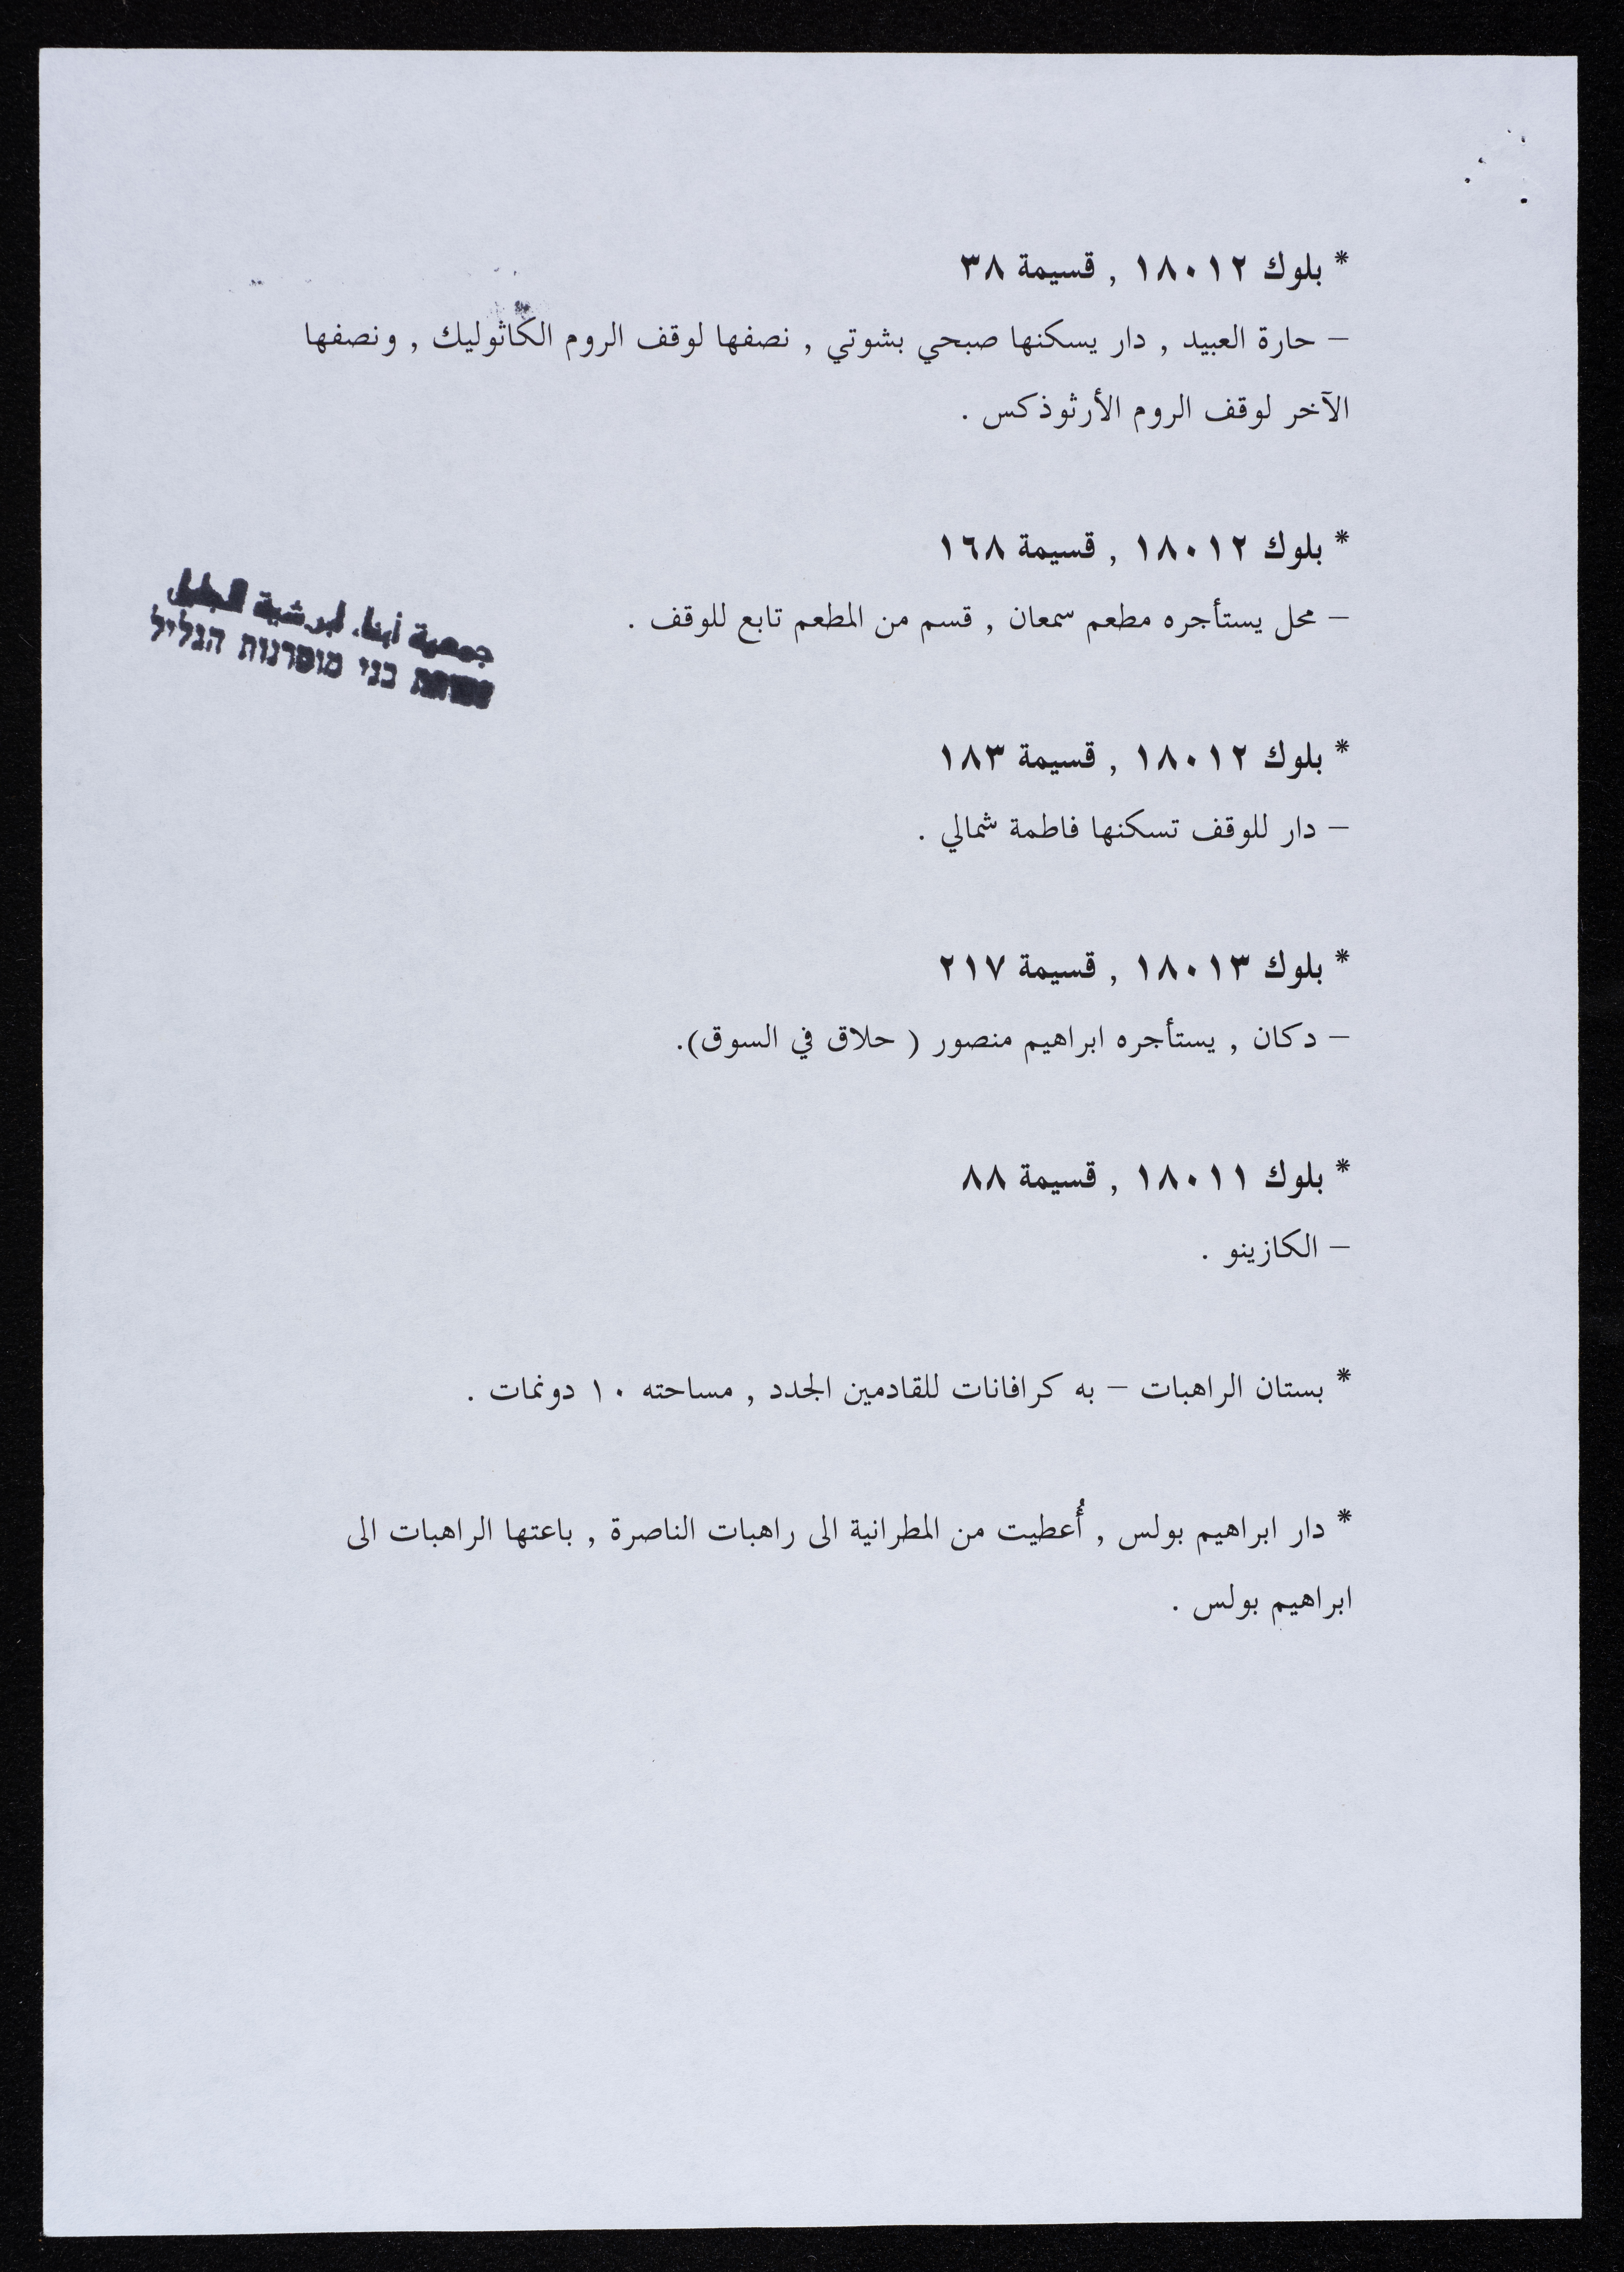 * بلوك ١٨٠١٢ , قسيمة ٣٨
– حارة العبيد , دار يسكنها صبحي بشوتي , نصفها لوقف الروم الكاثوليك , ونصفها
الآخر لوقف الروم الأرثوذكس .
* بلوك ١٨٠١٢ , قسيمة ١٦٨
– محل يستأجره مطعم سمعان , قسم من المطعم تابع للوقف .
جمعية أبناء ابرشية الجليل
בני מוטרנות הגליל
* بلوك ١٨٠١٢ , قسيمة ١٨٣
– دار للوقف تسكنها فاطمة شمالي .
* بلوك ١٨٠١٣ , قسيمة ٢١٧
– دكان , يستأجره ابراهيم منصور ( حلاق في السوق).
* بلوك ١٨٠١١ , قسيمة ٨٨
– الكازينو .
* بستان الراهبات – به كرافانات للقادمين الجدد , مساحته ١٠ دونمات .
* دار ابراهيم بولس , أُعطيت من المطرانية الى راهبات الناصرة , باعتها الراهبات الى
ابراهيم بولس .